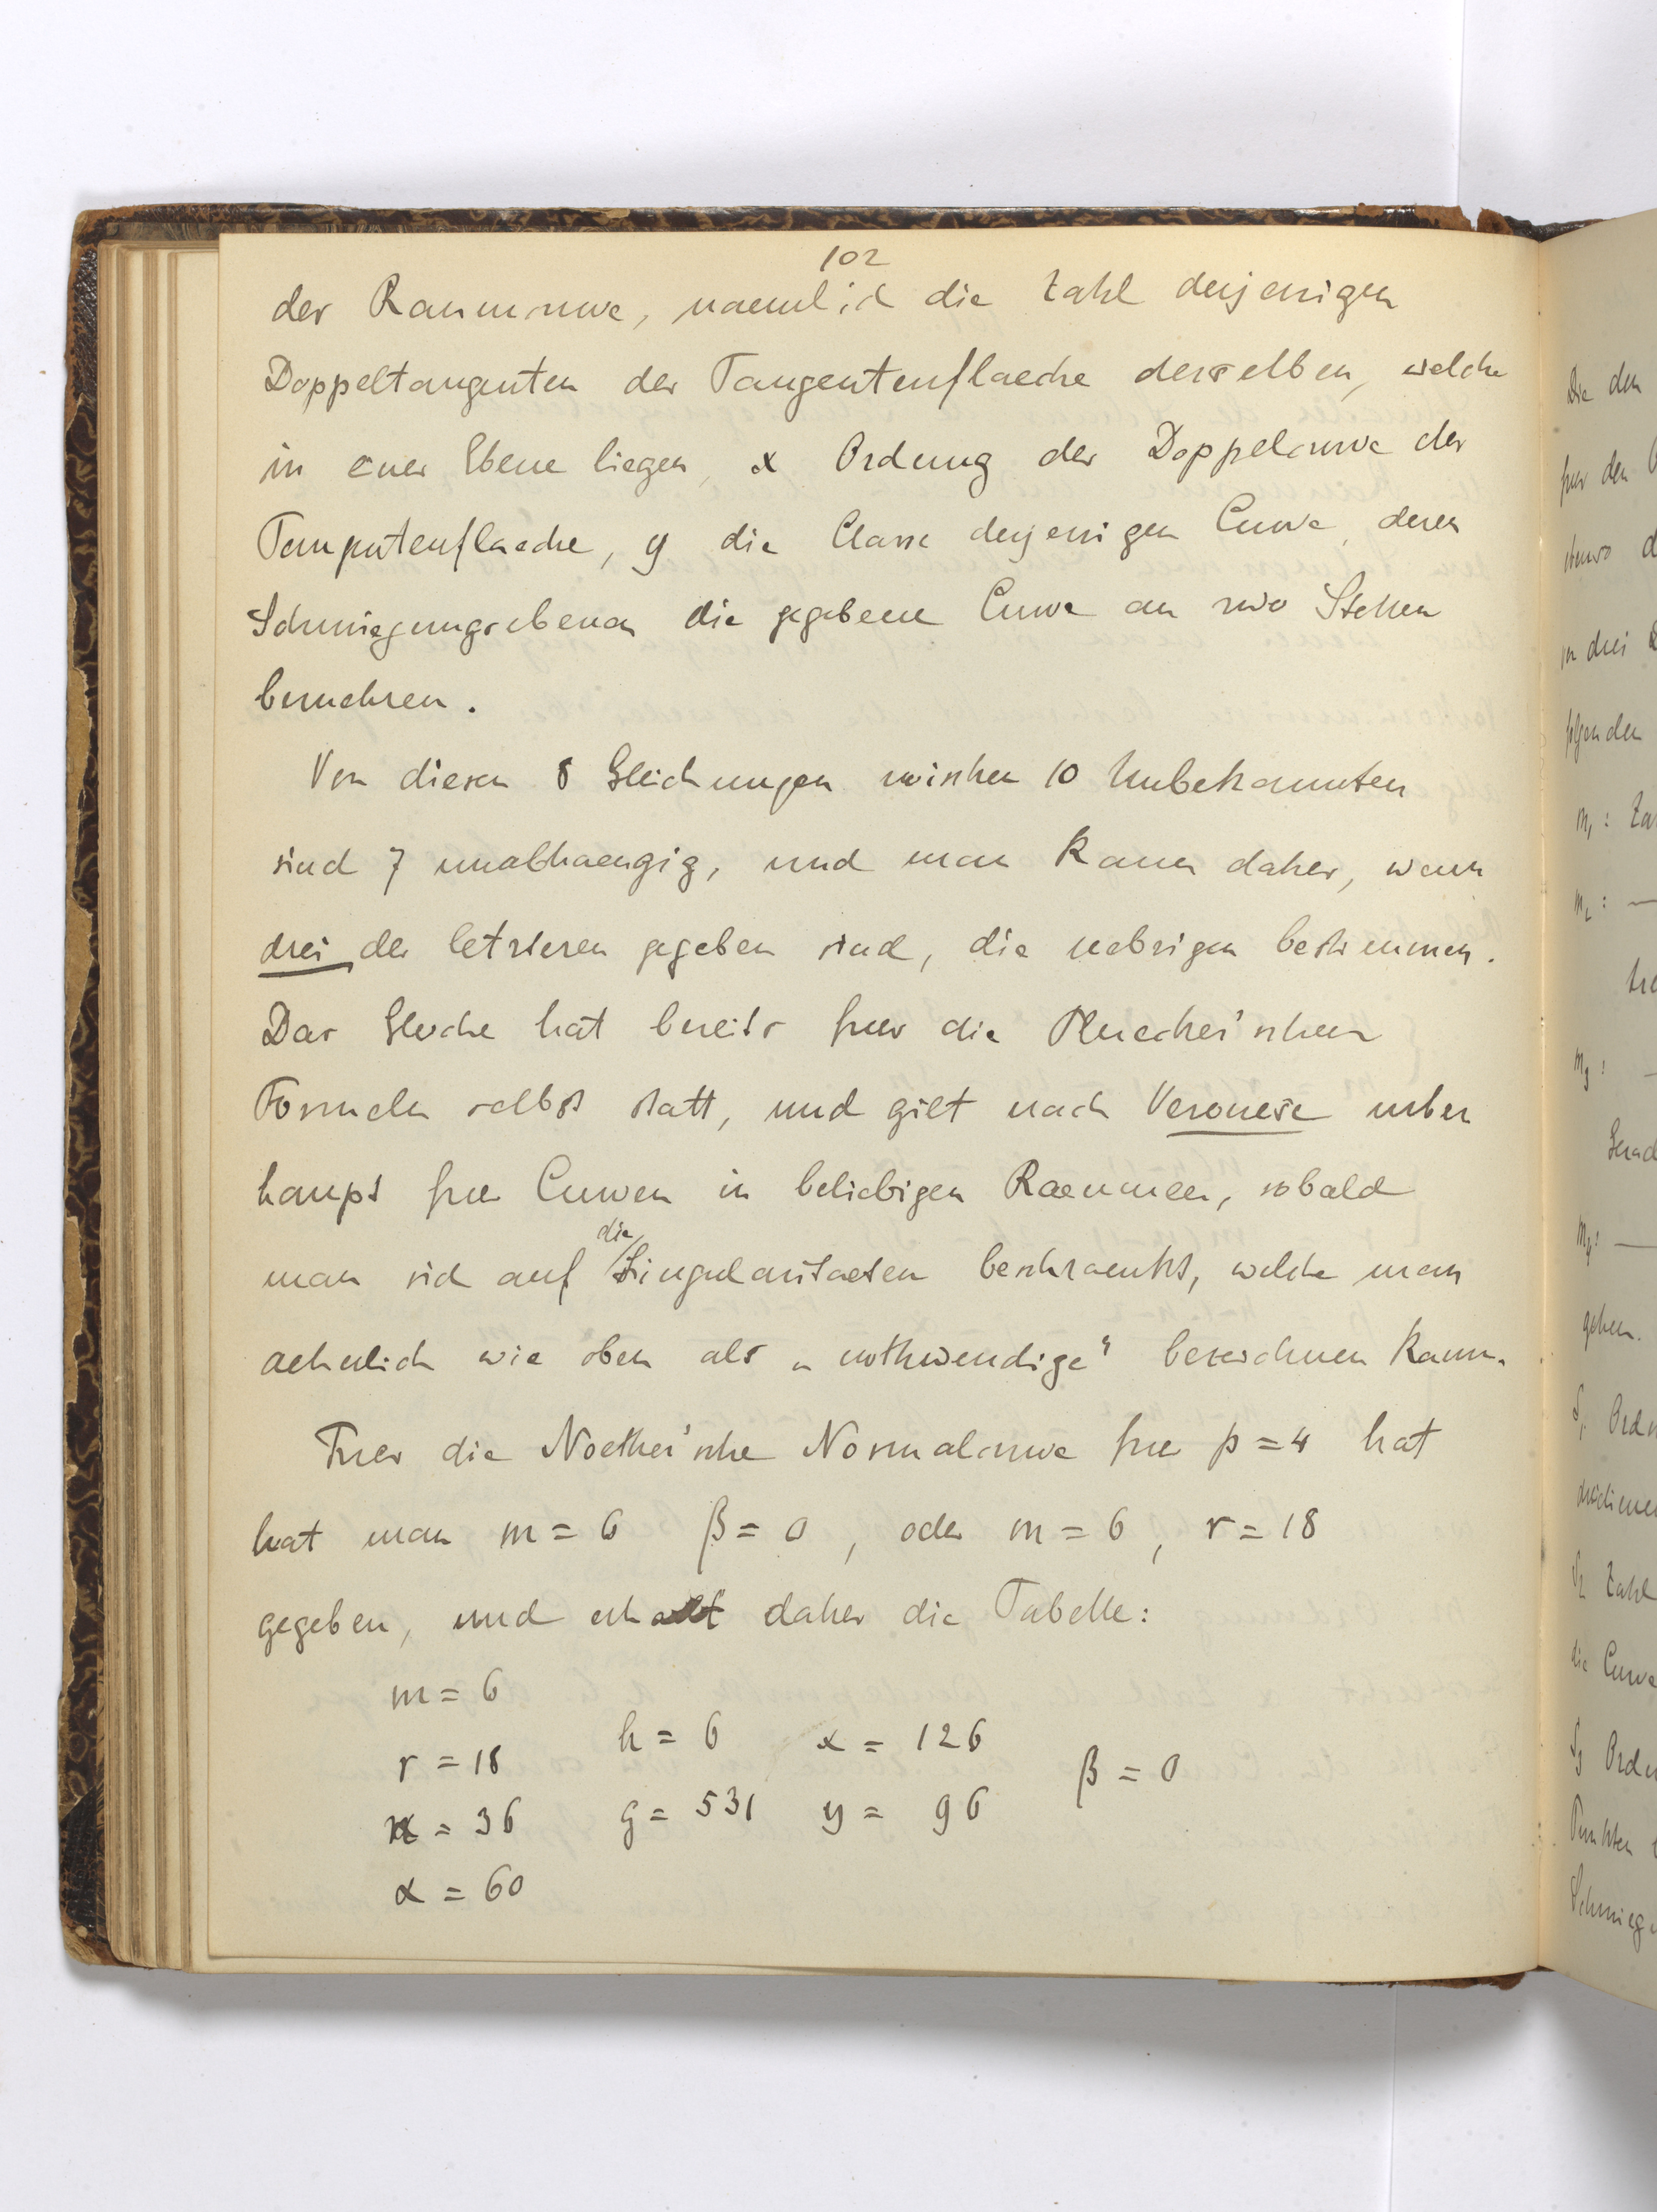 102
der Raumcurve, naemlich die Zahl derjenigen
Doppeltangenten der Tangentenflaeche derselben, welche
in einer Ebene liegen, x Ordnung der Doppelcurve der
Tangentenflaeche, y die Classe derjenigen Curve, deren
Schmiegungsebenen die gegebene Curve an zwo Stellen
beruehren.
Von diesen 8 Gleichungen zwischen 10 Unbekannten
sind 7 unabhaengig, und man kann daher, wenn
drei der letzteren gegeben sind, die uebrigen bestimmen.
Das Gleiche hat bereits fuer die Pluecker'schen
Formeln selbst statt, und gilt nach Veronese ueber
haupt fuer Curven in beliebigen Raeumen, sobald
man sich auf die Singularitaeten beschraenkt, welche man
aehnlich wie oben als „nothwendige" bezeichnen kann.
Fuer die Noether'sche Normalcurve fuer p = 4 hat
hat man m = 6 β = 0, oder m = 6, r = 18
gegeben, und erhaelt daher die Tabelle:
m = 6
r = 18 h = 6 x = 126 β = 0
n = 36 g = 531 y = 96
α = 60
Die den
fuer den
ebenso d
in drei
folgenden
m₁: Za
m₂: —
m₃: —
Gerad
m₄: —
gehen.
S₁ Ordn
dreidimen
S₂ Zahl
die Curve
S₃ Ordn
Punkten
Schmieg